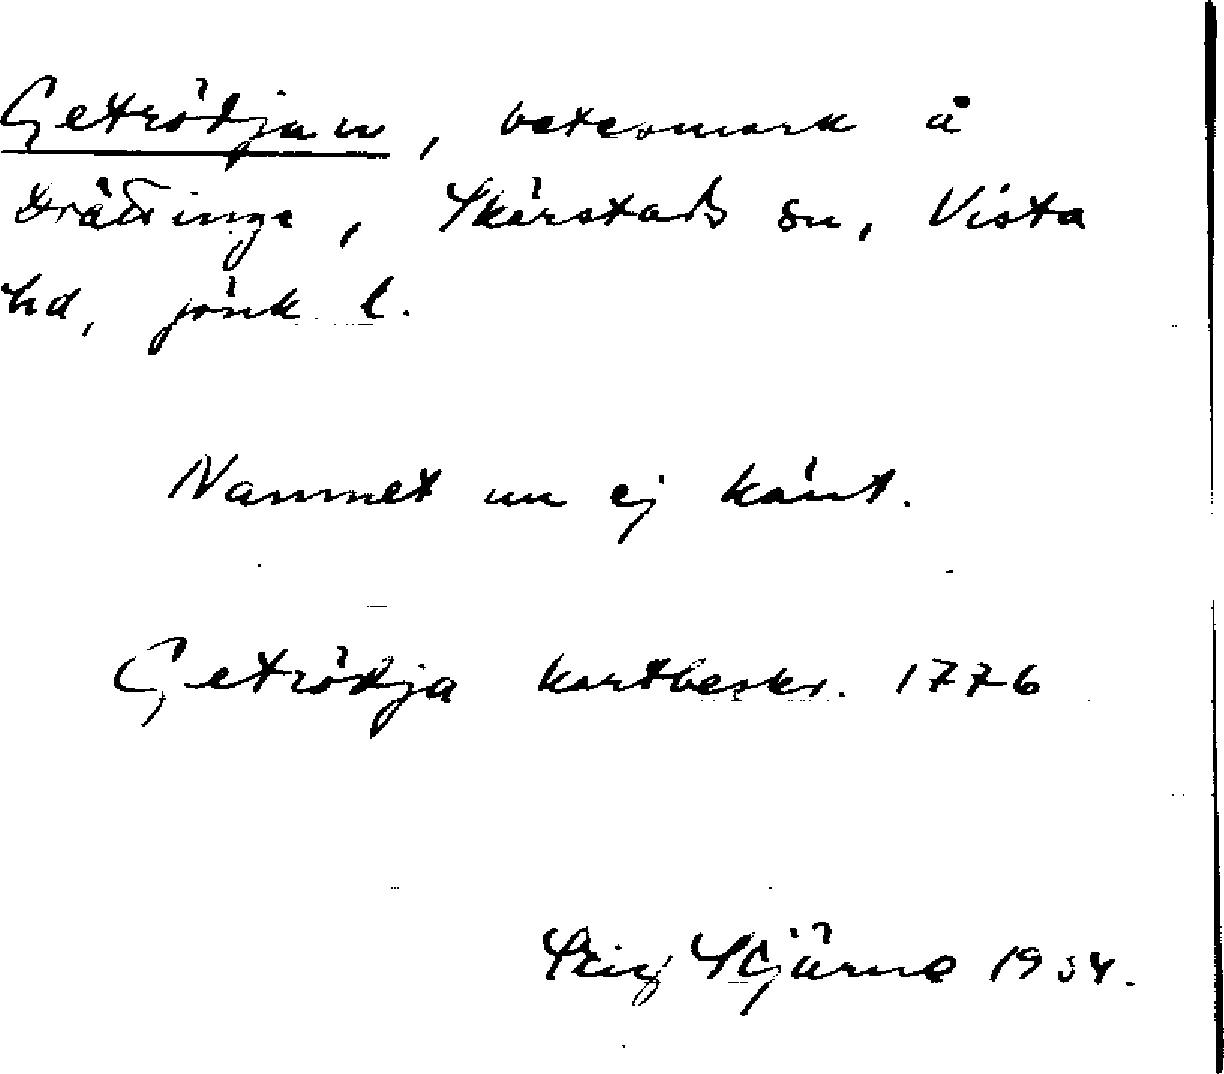 Getrödjan, betesmark å
Drättinge, Skärstads sn, Vista
hd, Jönk. l.
Namnet nu ej känt.
Getrödja kartbeskr. 1776
Stig Stjärne 1934.